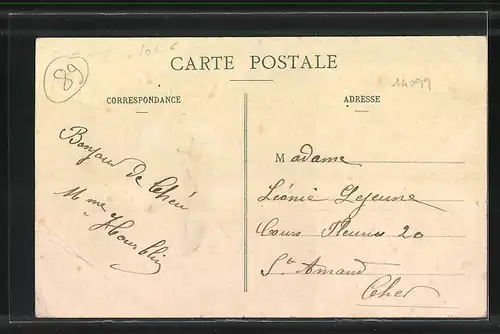 89
14099
CARTE POSTALE
CORRESPONDANCE
ADRESSE
Bonjour de Chéu
Mme
Madame
Léonie Lejeune
Cours Fleurus 20
St Amand
Cher